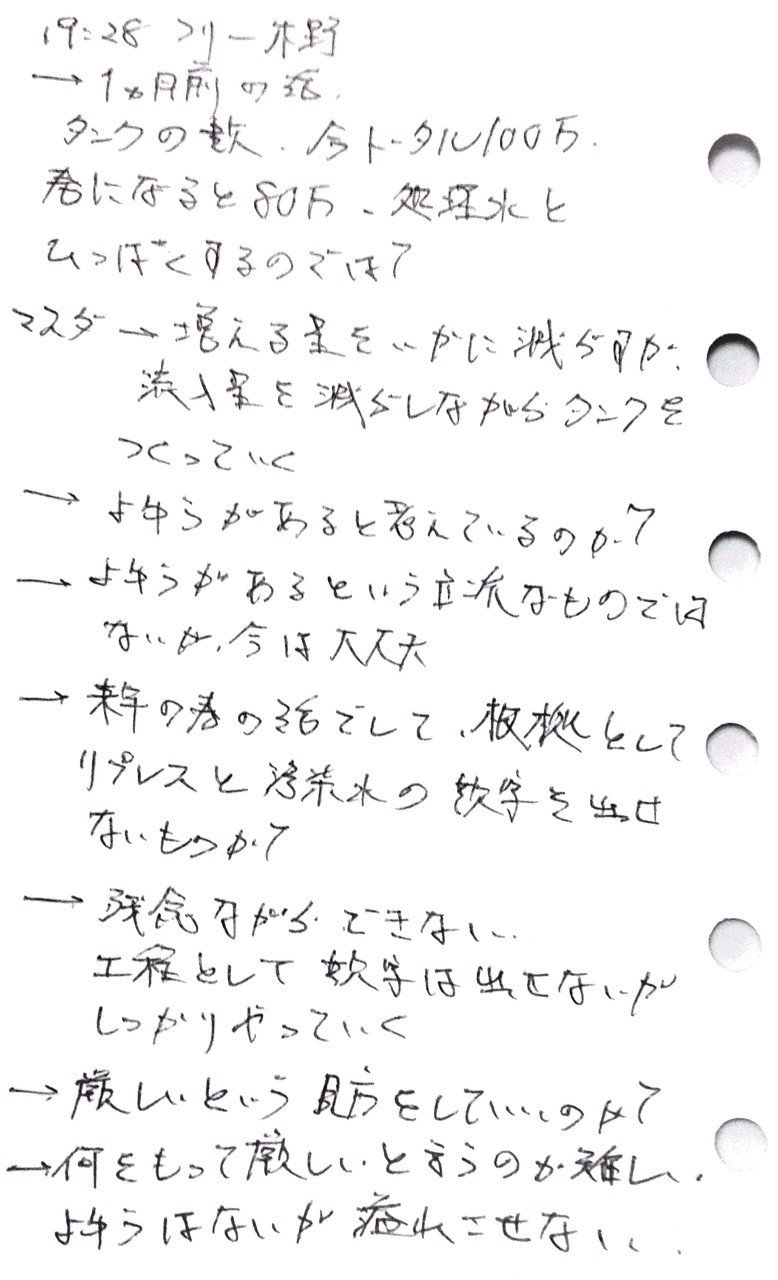 19:28 フリー木野
→1ヵ月前の話.
タンクの数、今トータル100万.
春になると80万、処理水と
ひっぱくするのでは?
マスダ→増える量をいかに減らすか.
流入量を減らしながらタンクを
つくっていく
→よゆうがあると考えているのか?
→よゆうがあるという立派なものでは
ないが、今は大丈夫
→来年の春の話でして、根拠として
リプレスと汚染水の数字を出せ
ないものか?
→残念ながらできない.
工程として数字は出せないが
しっかりやっていく
→厳しいという見方をしていいのか?
→何をもって厳しいと言うのか難しい.
よゆうはないが溢れさせない.